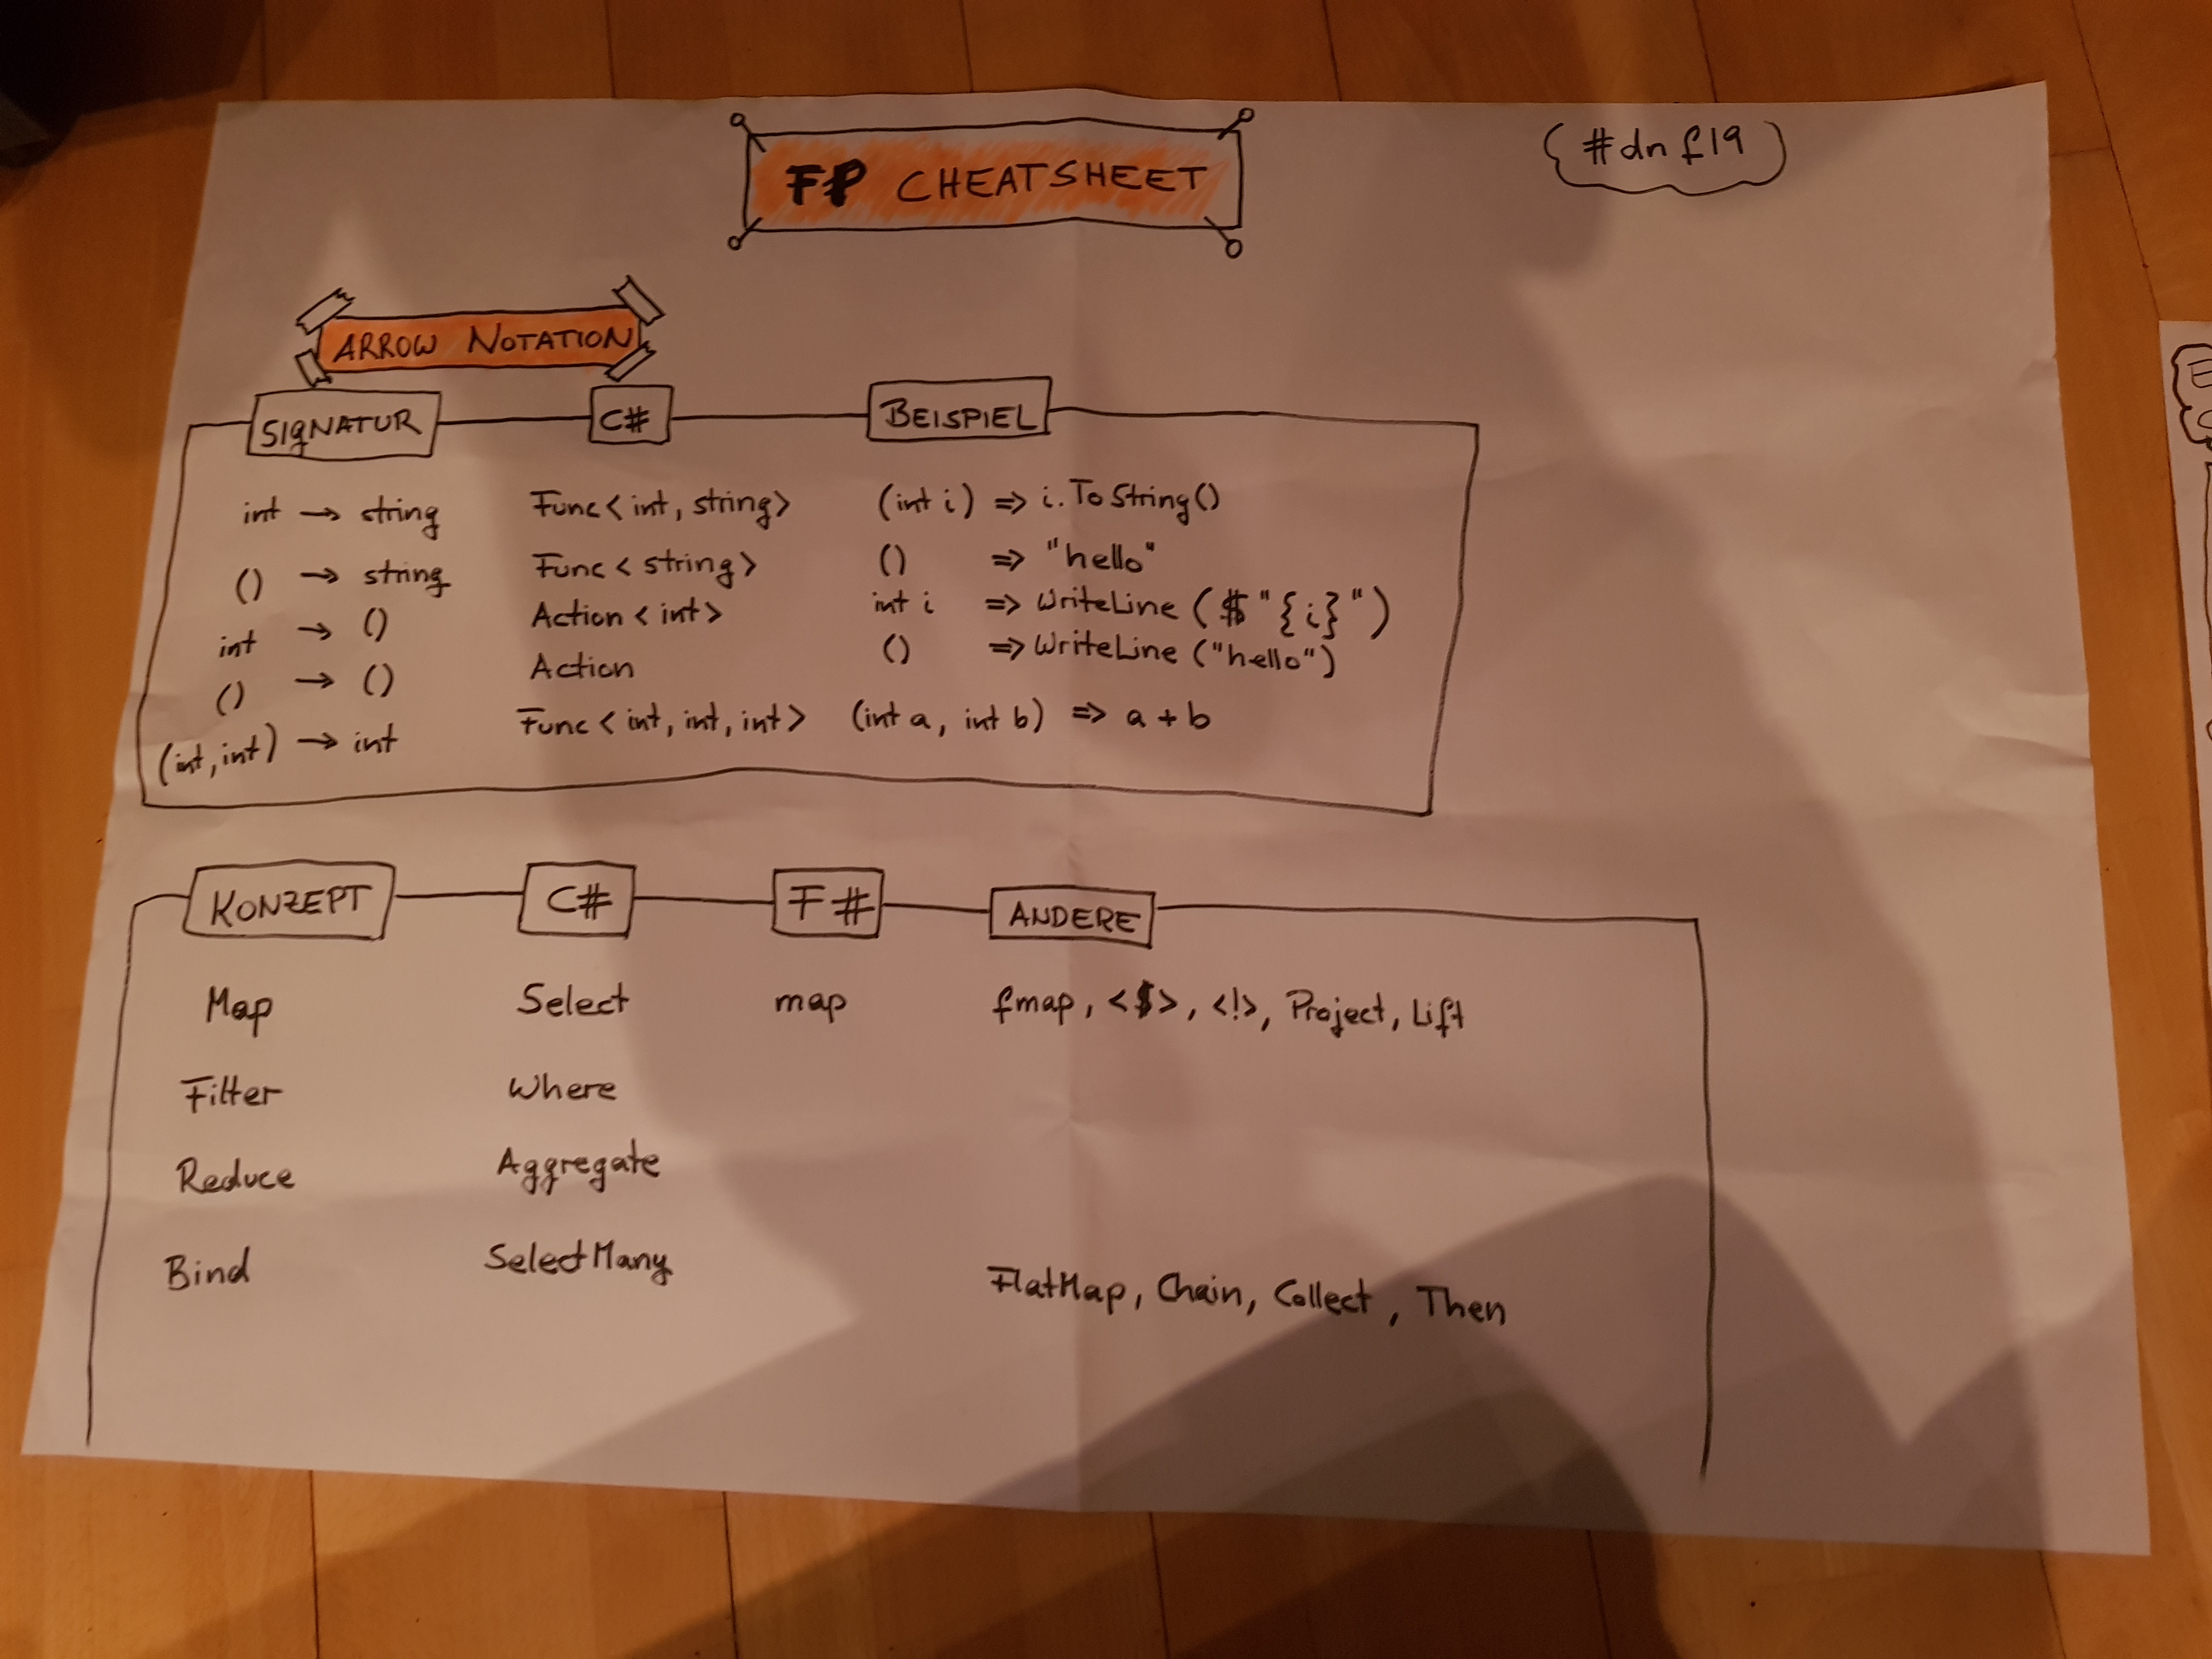 FP CHEATSHEET
#dnf19
ARROW NOTATION
SIGNATUR C# BEISPIEL
int → string Func<int, string> (int i) => i.ToString()
() → string Func<string> () => "hello"
int → () Action<int> int i => WriteLine($"{i}")
() → () Action () => WriteLine("hello")
(int, int) → int Func<int, int, int> (int a, int b) => a + b
KONZEPT C# F# ANDERE
Map Select map fmap, <$>, <!>, Project, Lift
Filter Where
Reduce Aggregate
Bind SelectMany FlatMap, Chain, Collect, Then